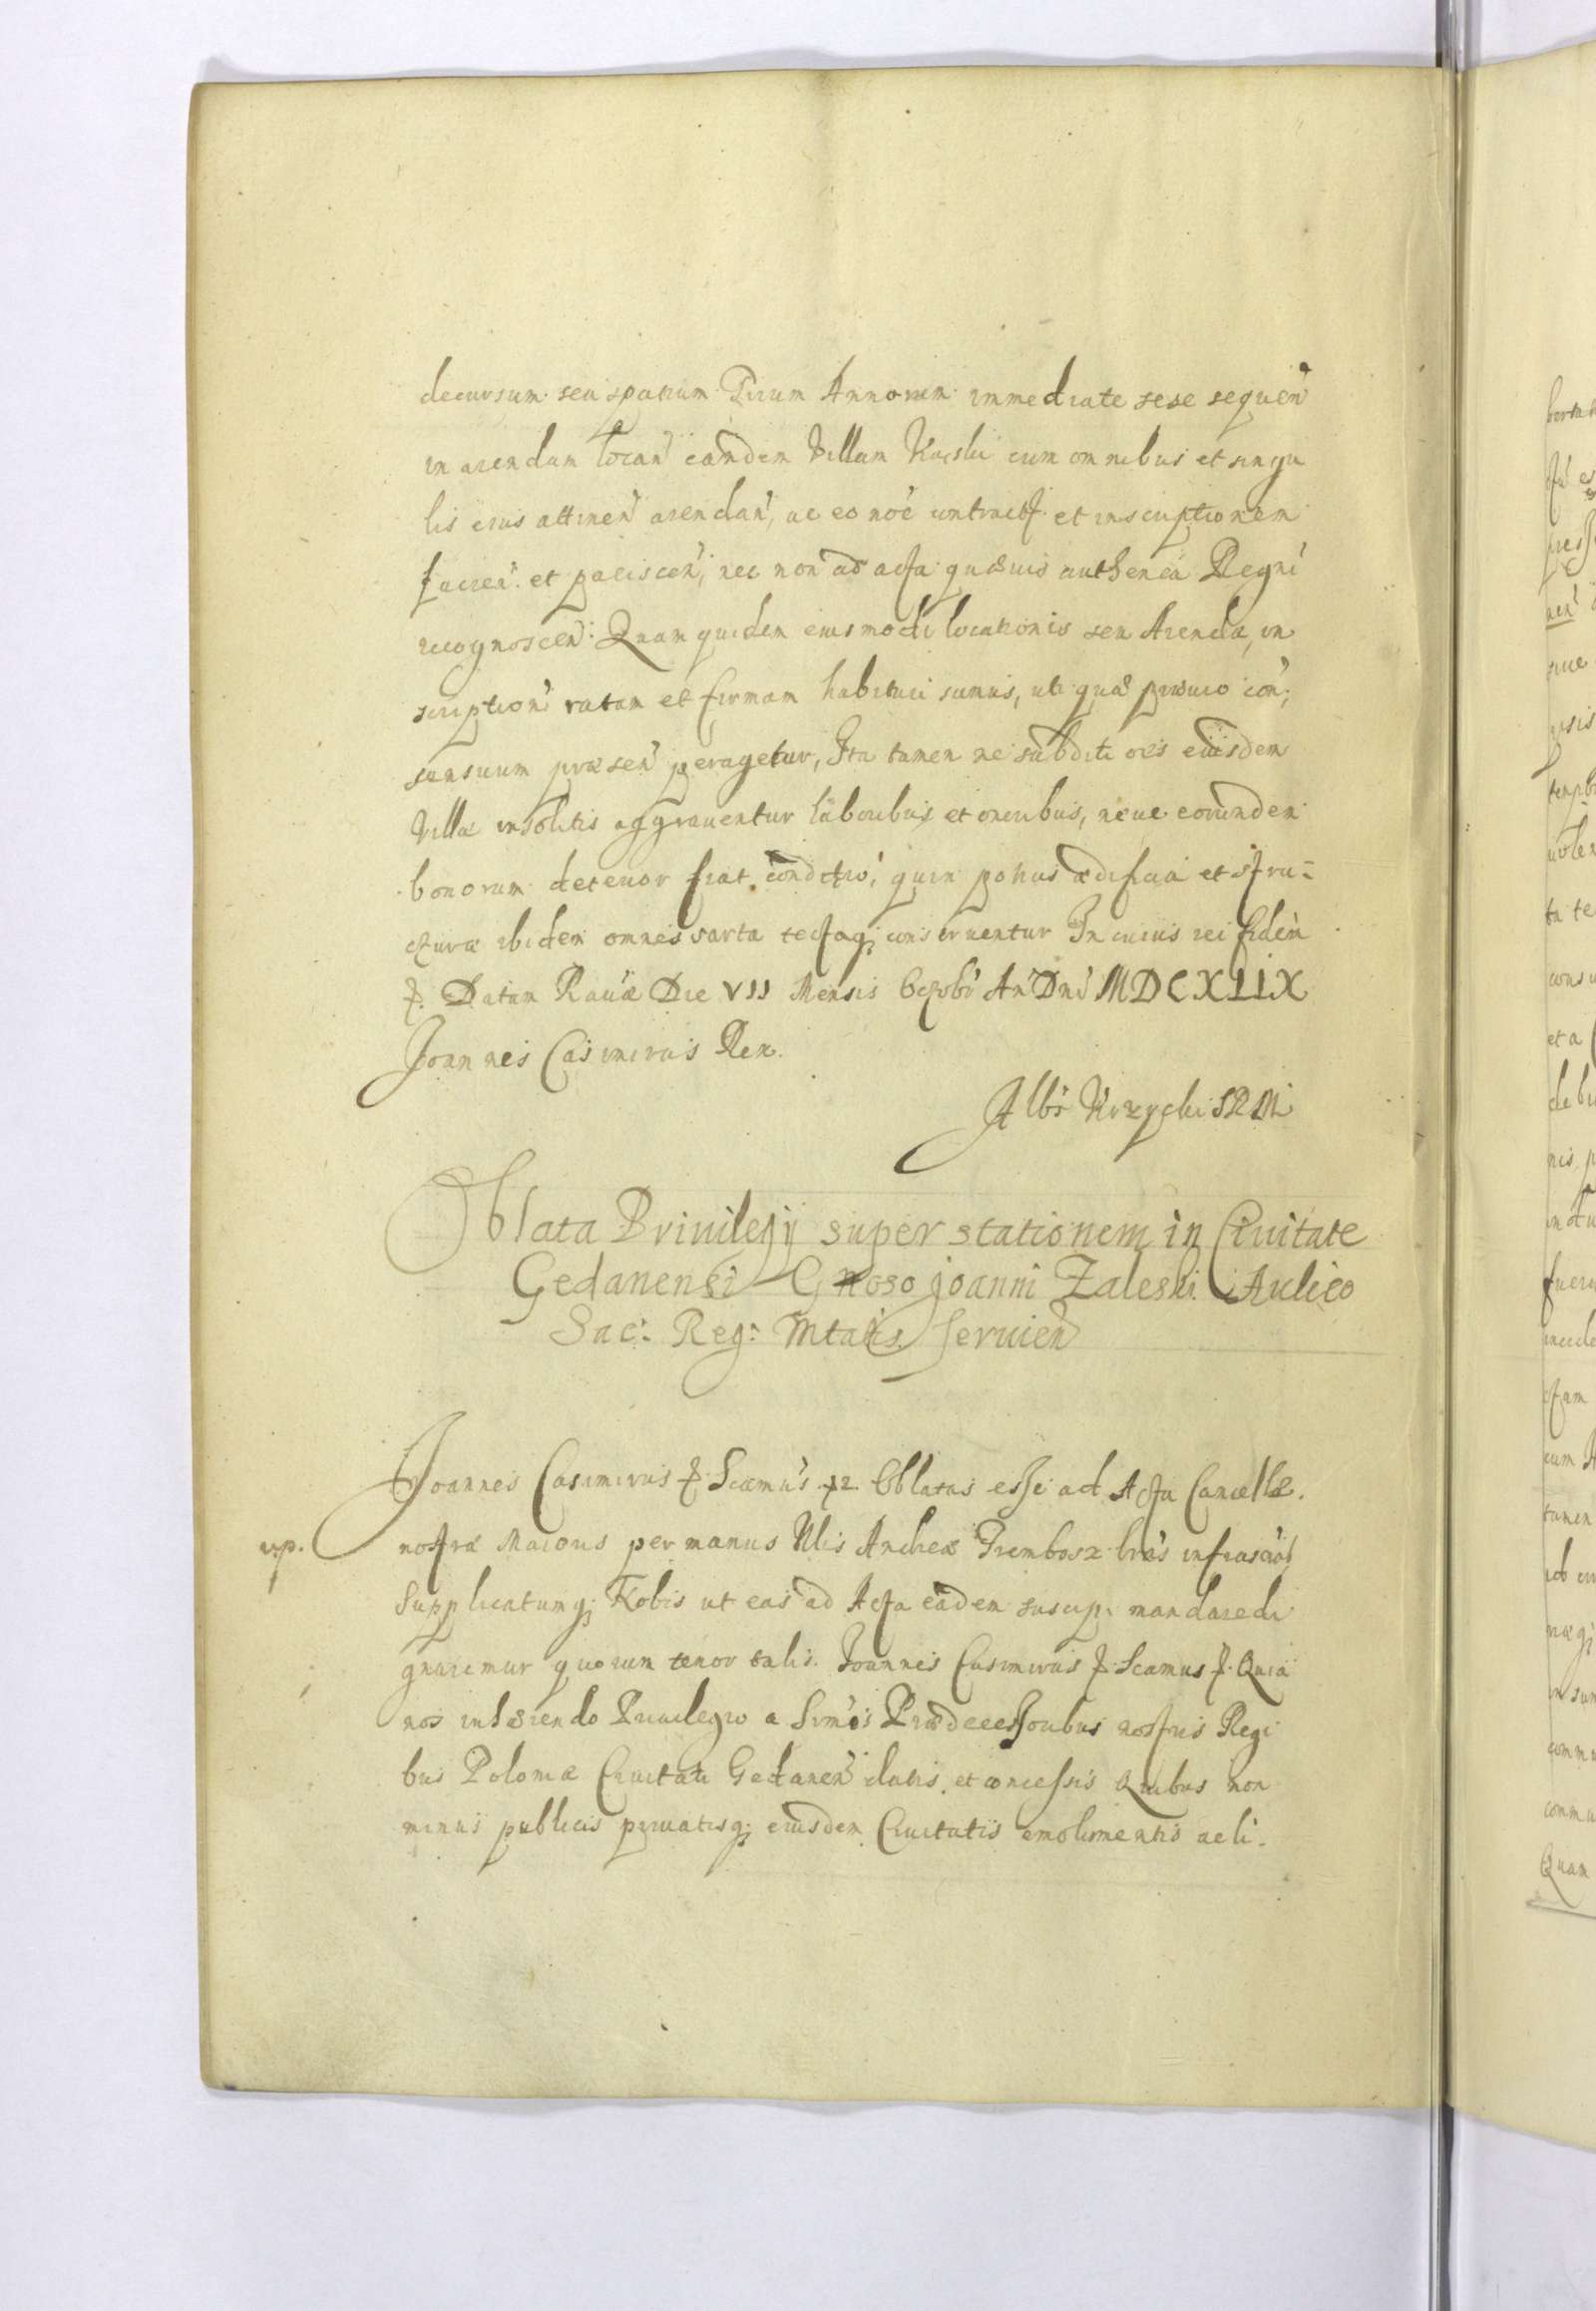 decursum seu spatium Trium Annorum immediate sese sequen
in arendam locan eandem Villam cum omnibus et singu
lis eius attinen arendan, ac eo noe contract et inscriptionem
facien et paciscen, nec non ad acta quævis authenca Regni
recognoscen: Quam quidem eiusmodi locationis seu Arendæ, in
scription ratam et firmam habituri sumus, uti quæ prævio con,
sensuum præsen peragetur, Ita tamen ne subditi oes eiusdem
Villæ insolitis aggrauentur laboribus et oneribus, neue eorundem
bonorum deterior fiat conditio, quin potius ædificia et stru-
cturæ ibidem omnes sarta tectaq conseruentur In cuius rei fidem
Datam Rauæ Die VII Mensis Octobr An Dni MDCXLIX
Joannes Casimirus Rex.
Albs Krzycki SRM
Oblata Priuilegij super stationem in Ciuitate
Gedanensi Gnoso Joanni Zaleski Aulico
Sac: Reg: Mtatis seruien
Joannes Casimirus Scamus Oblatas esse ad Acta Cancellæ.
up. nostræ Maioris per manus Nlis Andreæ
Supplicatumq Nobis ut eas ad Acta eadem suscip. mandare di
gnaremur quorum tenor talis. Joannes Casimirus Scamus Quia
nos inhærendo Priuilegio a Srmis Prædecessoribus nostris Regi
bus Poloniæ Ciuitati Gedanen datis et concessis Quibus non
minus publicis priuatisq eiusdem Ciuitatis emolumentis ac li-